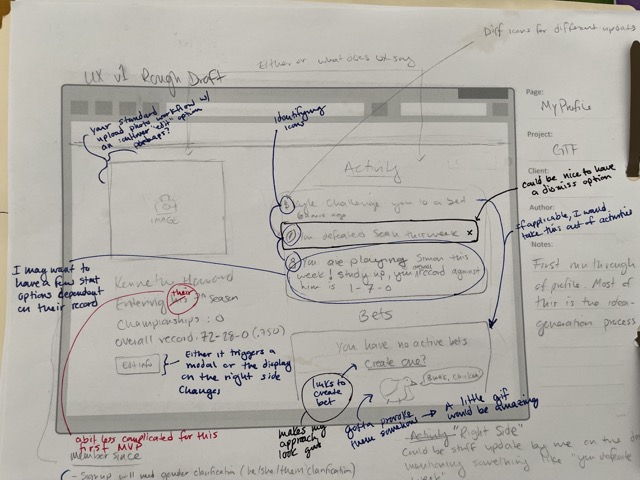 UX v1 Rough Draft
Either or what does UX say
Diff icons for different updates
Page:
My Profile
Project:
GTF
Client:
Author:
Notes:
First run through
of profile. Most
of this is two idea-
generation process
Your standard
upload photo workflow w/
an "edit" option
perhaps?
IMAGE
identifying
icons
Activity
Challenge you to a bed
ago
You defeated Sean this week x
You are playing Simon this
week! Study up, your record against
him is 1-7-0
could be nice to have
a dismiss option
If applicable, I would
take this out of activities
I may want to
have a few stat
options dependant
on their record
Kenneth Howard
Entering their 7th season
Championships: 0
overall record: 72-28-0 (.750)
Edit info
Either it triggers a
modal or the display
on the right side
changes
Bets
You have no active bets
Create one?
Bawk, chicken
links to
create
bet
makes my
approach
look good
gotta provoke
them somehow
A little gif
would be amazing
a bit less complicated for this
first MVP
member since
- Signup will need gender clarification (he/she/them clarification)
Activity "Right Side"
Could be stuff update by me on the
mentioning something like "you defeated
week"